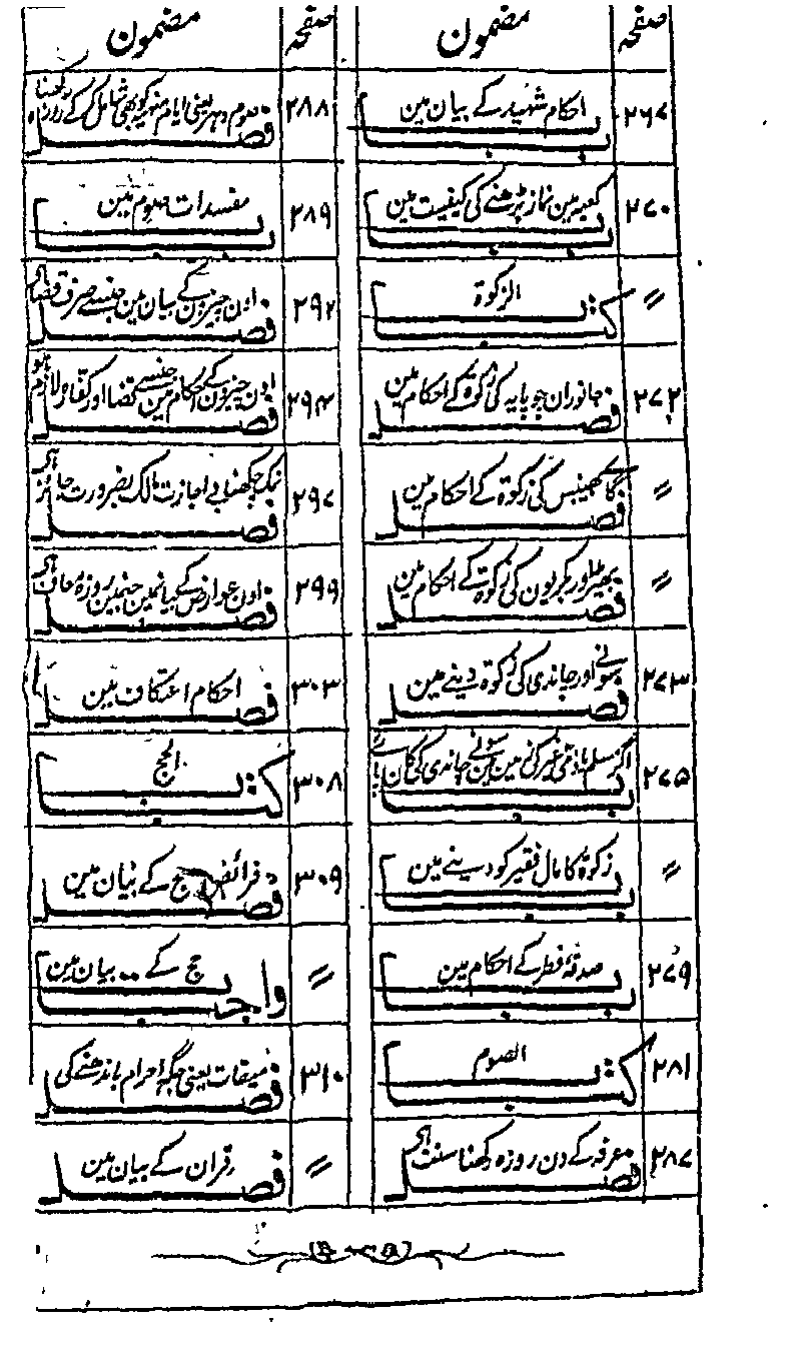 صفحہ مضمون
۲۶۷ باب احکام شہید کے بیان مین
۲۷۰ باب کعبہ مین نماز پڑھنے کی کیفیت مین
〃 کتاب الزکوۃ
۲۷۲ فصل جانوران چوپایہ کی زکوۃ کے احکام مین
〃 فصل گائے بھینس کی زکوۃ کے احکام مین
〃 فصل بھیڑ اور بکریون کی زکوۃ کے احکام مین
۲۷۳ فصل سونے اور چاندی کی زکوۃ دینے مین
۲۷۵ باب اگر مسلم یا ذمی غیر کی زمین مین سونے چاندی کی کان پائے
〃 باب زکوۃ کا مال فقیر کو دینے مین
۲۷۹ باب صدقۂ فطر کے احکام مین
۲۸۱ کتاب الصوم
۲۸۷ فصل عرفہ کے دن روزہ رکھنا سنت ہے
صفحہ مضمون
۲۸۸ فصل صوم دہر یعنی ایام منہیہ کو بھی شامل کر کے روزہ رکھنا
۲۸۹ باب مفسدات صوم مین
۲۹۲ فصل اون چیزون کے بیان مین جنسے صرف قضا ہے
۲۹۴ فصل اون چیزون کے احکام مین جنسے قضا اور کفارہ لازم ہو
۲۹۷ فصل نمک چکھنا بے اجازت مالک بضرورت جائز ہے
۲۹۹ فصل اون عوارض کے بیانمین جنمین روزہ معاف ہے
۳۰۳ فصل احکام اعتکاف مین
۳۰۸ کتاب الحج
۳۰۹ فصل فرائض حج کے بیان مین
〃 واجب حج کے بیان مین
۳۱۰ فصل میقات یعنی جگہ احرام باندھنے کی
〃 فصل قران کے بیان مین